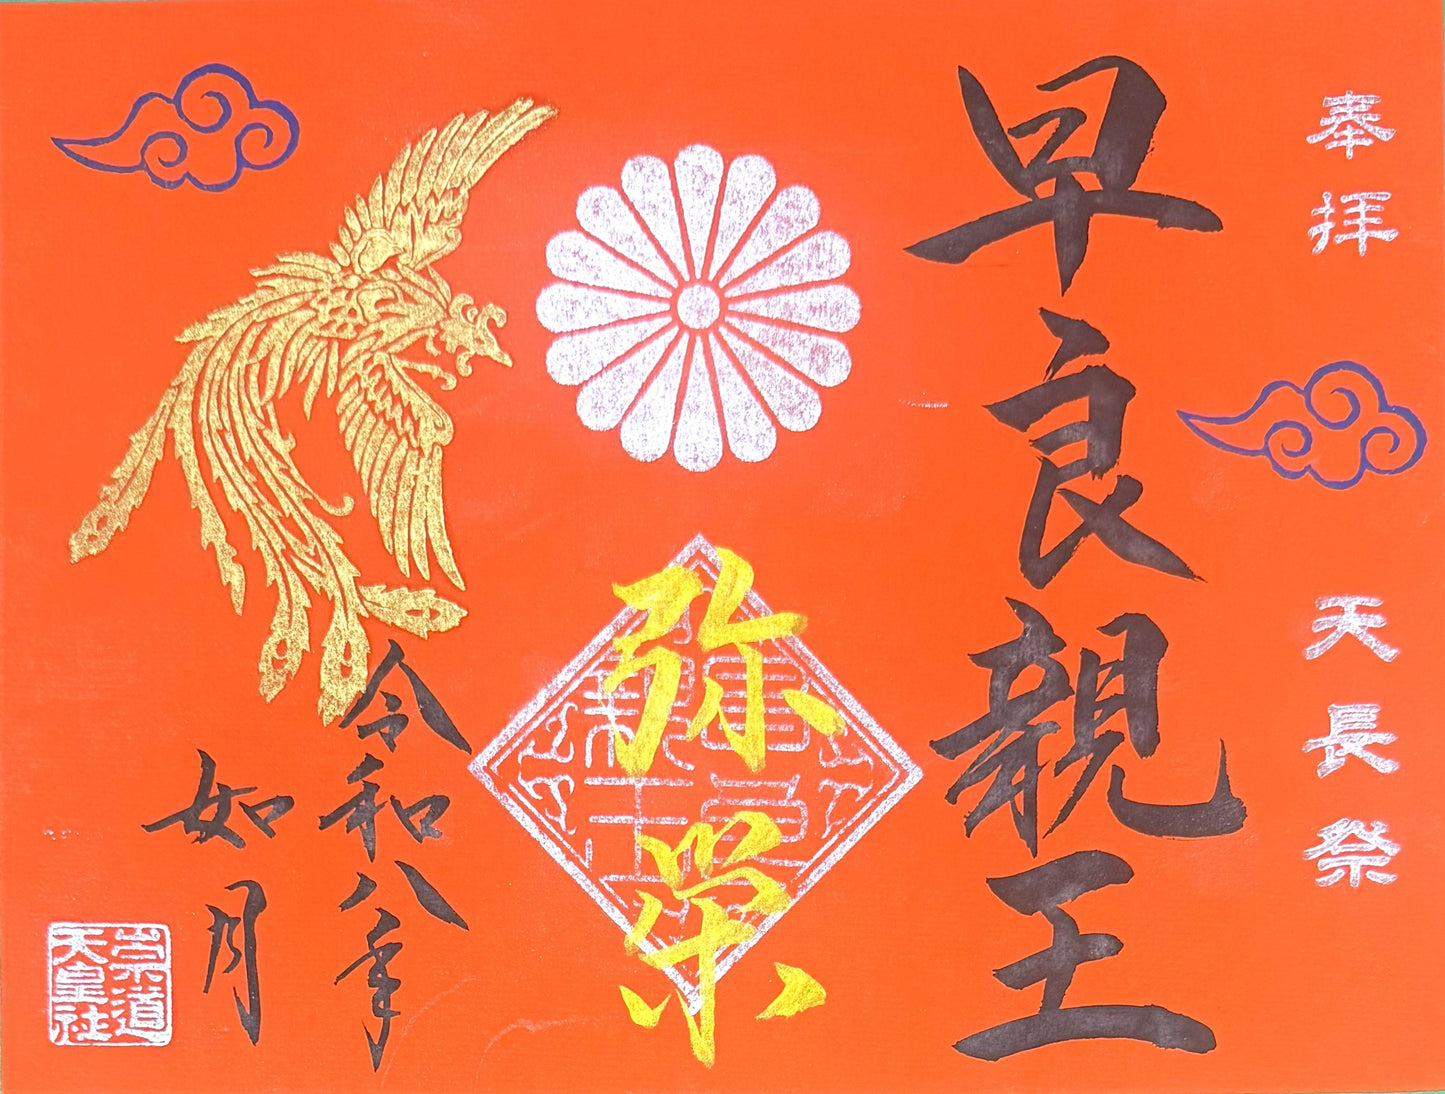 奉拝
天長祭
早良親王
弥栄
早良親王
令和八年
如月
崇道天皇社